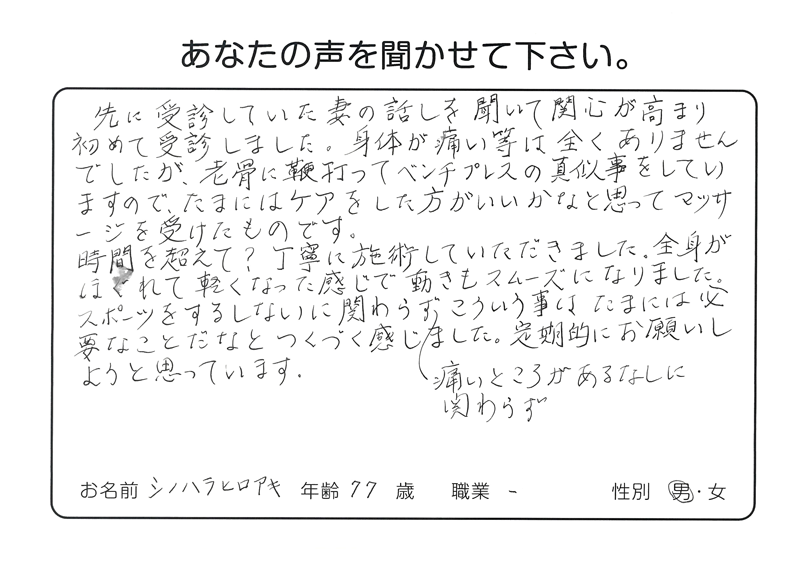 あなたの声を聞かせて下さい。
先に受診していた妻の話しを聞いて関心が高まり
初めて受診しました。身体が痛い等は全くありません
でしたが、老骨に鞭打ってベンチプレスの真似事をしてい
ますので、たまにはケアをした方がいいかなと思ってマッサ
ージを受けたものです。
時間を超えて?丁寧に施術していただきました。全身が
ほぐれて軽くなった感じで動きもスムーズになりました。
スポーツをするしないに関わらずこういう事はたまには必
要なことだなとつくづく感じました。定期的にお願いし
ようと思っています。
痛いところがあるなしに
関わらず
お名前 シノハラヒロアキ 年齢 77 歳 職業 - 性別 男・女